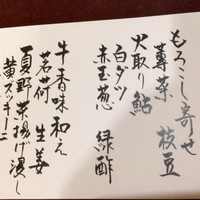 もろこし寄せ
蓴菜 枝豆
火取り鮎
白ダツ
赤玉葱 緑酢
牛香味和え
茗荷 生姜
夏野菜揚げ浸し
黄ズッキーニ